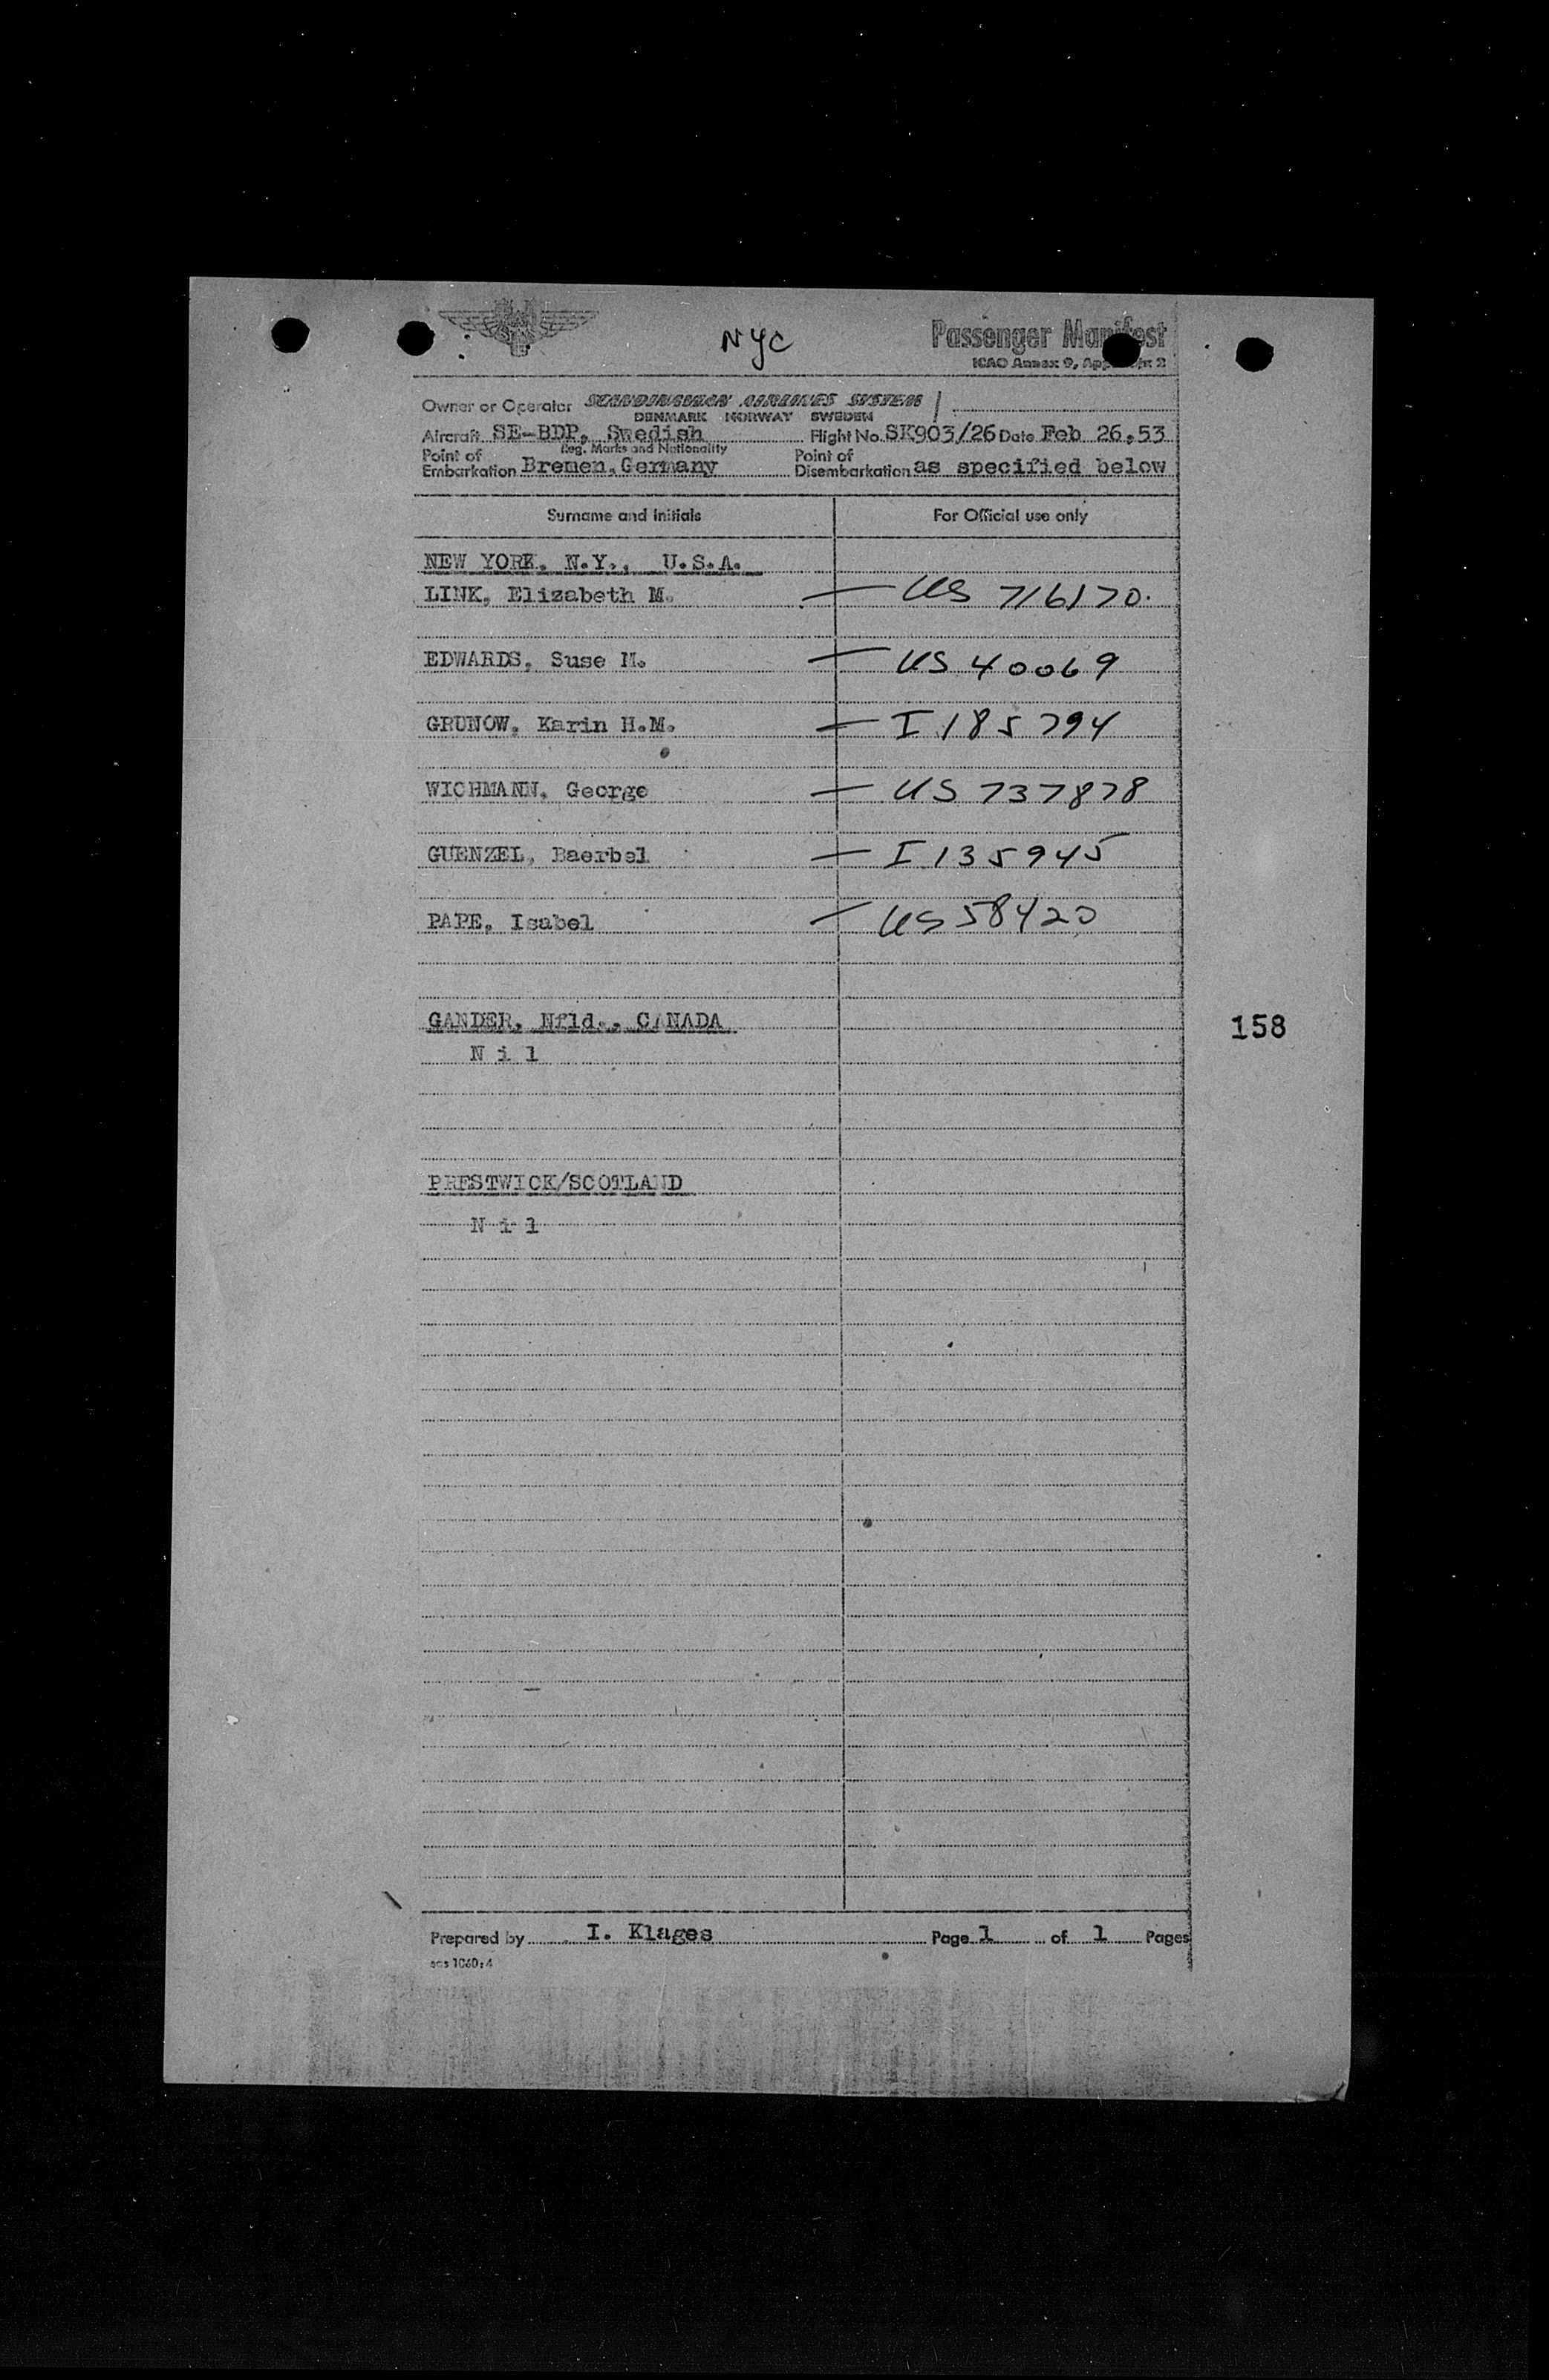 NYC
Passenger Manifest
ICAO Annex 9, Appendix 2
Owner or Operator SCANDINAVIAN AIRLINES SYSTEM
DENMARK NORWAY SWEDEN
Aircraft SE-BDP, Swedish Flight No. SK903/26 Date Feb 26.53
Reg. Marks and Nationality
Point of Embarkation Bremen, Germany Point of Disembarkation as specified below
Surname and Initials For Official use only
NEW YORK, N.Y., U.S.A.
LINK, Elizabeth M. — US 716170.
EDWARDS, Suse M. — US 40069
GRUNOW, Karin H.M. — I 185794
WICHMANN, George — US 737878
GUENZEL, Baerbel — I 135945
PAPE, Isabel — US 58420
GANDER, Nfld., CANADA
158
N i l
PRESTWICK/SCOTLAND
N i l
Prepared by I. Klages Page 1 of 1 Pages
sas 1060:4